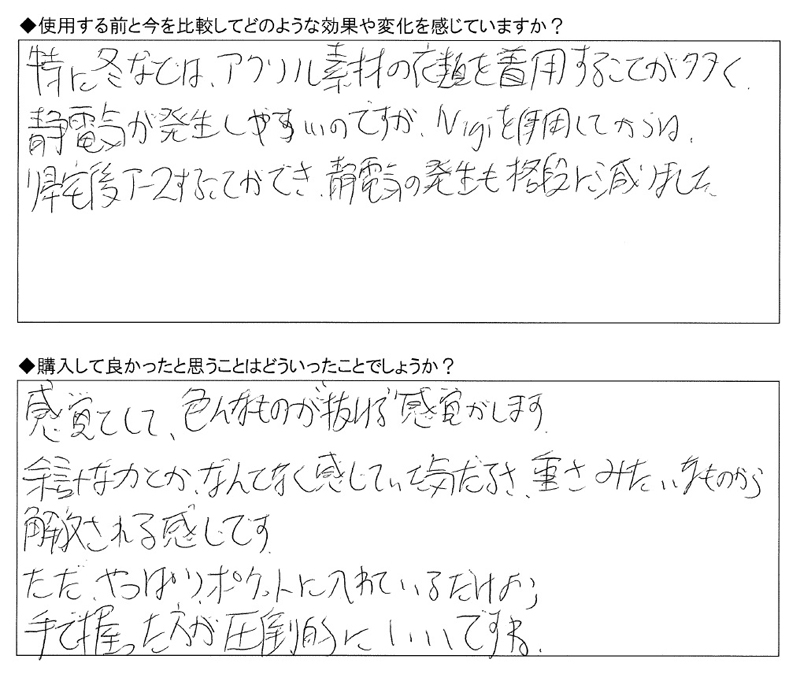 ◆使用する前と今を比較してどのような効果や変化を感じていますか？
特に冬などは、アクリル素材の衣類を着用することが多く、
静電気が発生しやすいのですが、Nigiを使用してからは、
帰宅後アースすることができ、静電気の発生も格段に減りました
◆購入して良かったと思うことはどういったことでしょうか？
感覚として、色んなものが抜ける感覚がします。
余計な力とか、なんとなく感じていた気だるさ、重さみたいなものから
解放される感じです
ただ、やっぱり、ポケットに入れているだけより
手で握った方が圧倒的にいいですね。